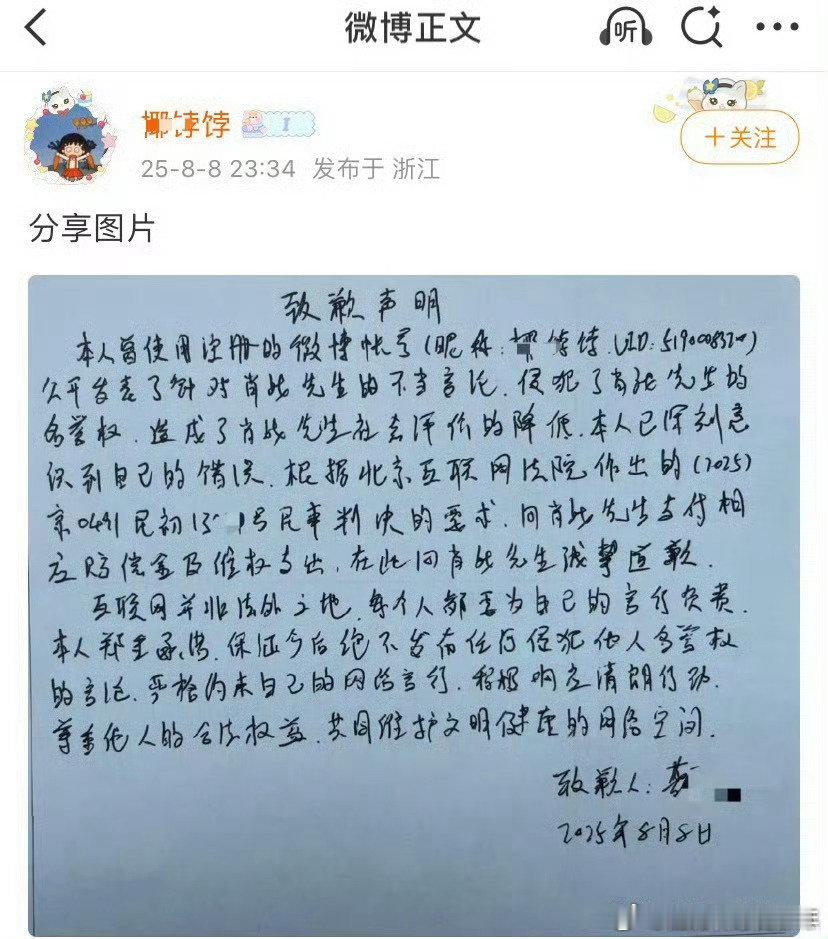 微博正文
听
饽饽
I
25-8-8 23:34 发布于 浙江
+关注
分享图片
致歉声明
本人曾使用注册的微博帐号(昵称:饽饽,UID:5190008370)
公开发表了针对肖战先生的不当言论,侵犯了肖战先生的
名誉权,造成了肖战先生社会评价的降低,本人已深刻意
识到自己的错误,根据北京互联网法院作出的(2025)
京0491民初号民事判决的要求,向肖战先生支付相
应赔偿金及维权支出,在此向肖战先生诚挚道歉.
互联网并非法外之地,每个人都要为自己的言行负责.
本人郑重承诺,保证今后绝不发布任何侵犯他人名誉权
的言论,严格约束自己的网络言行,积极响应清朗行动.
尊重他人的合法权益,共同维护文明健康的网络空间.
致歉人:
2025年8月8日